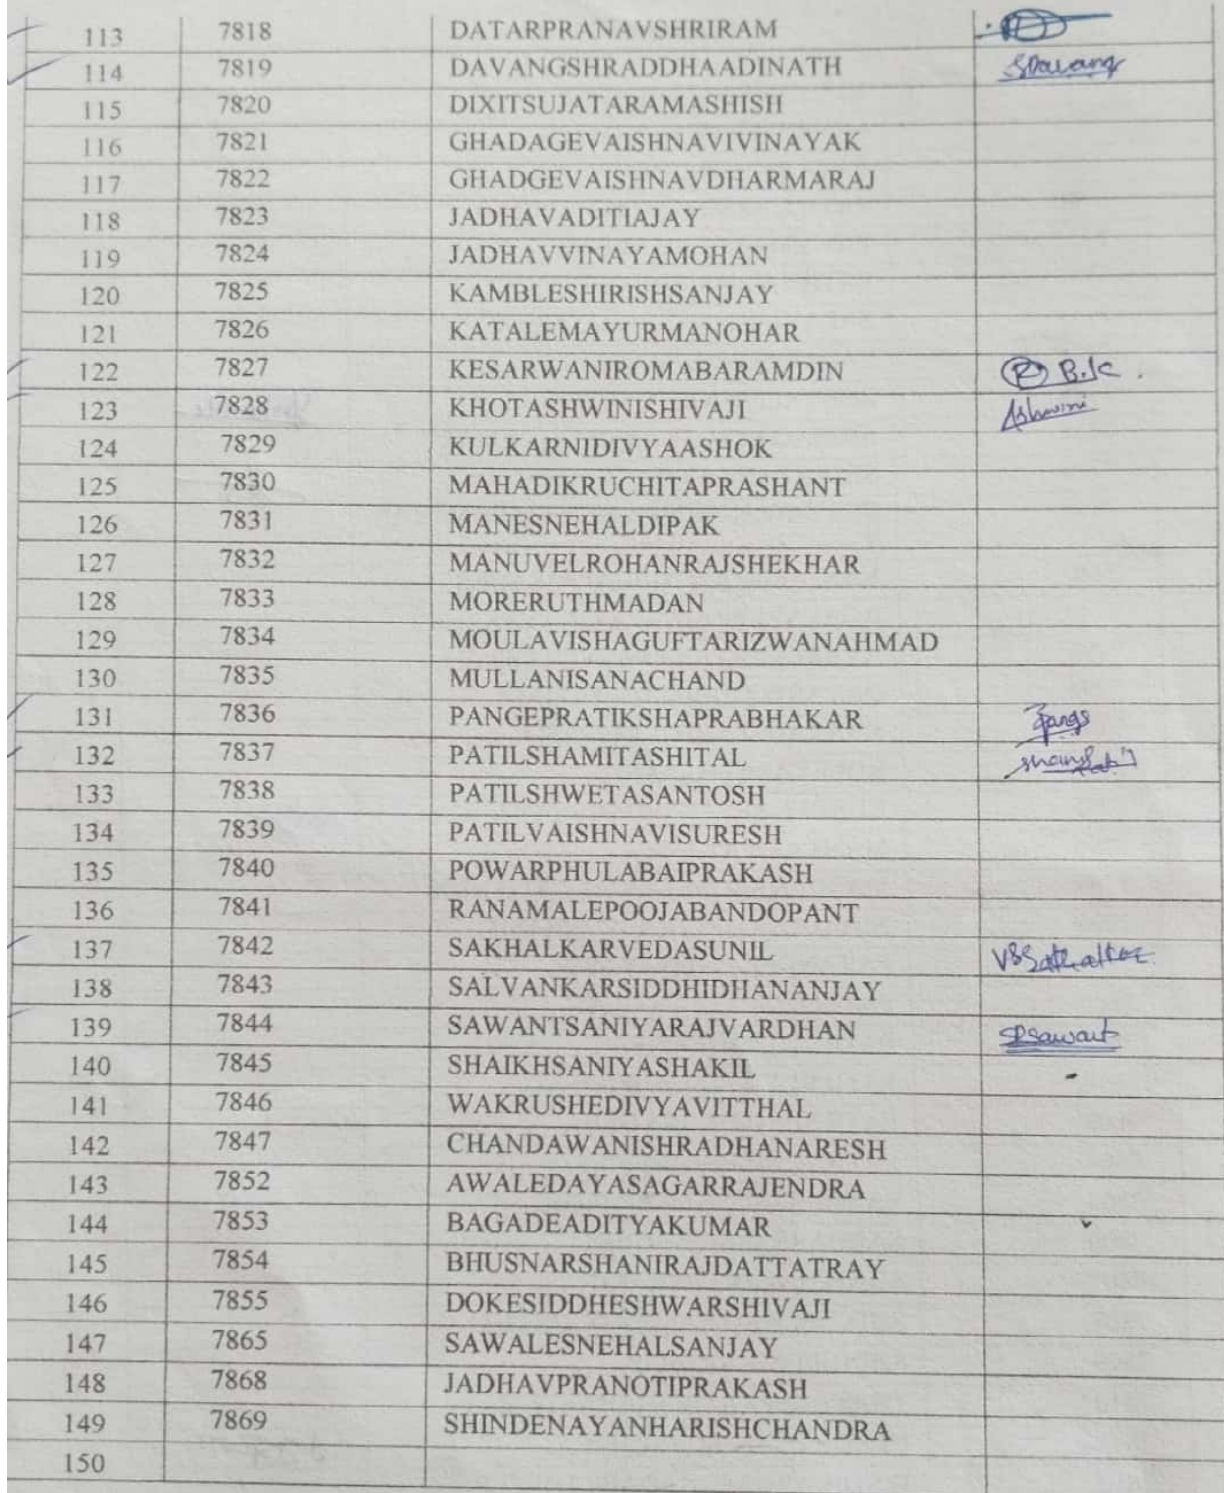 113 7818 DATARPRANAVSHRIRAM
114 7819 DAVANGSHRADDHAADINATH SDavang
115 7820 DIXITSUJATARAMASHISH
116 7821 GHADAGEVAISHNAVIVINAYAK
117 7822 GHADGEVAISHNAVDHARMARAJ
118 7823 JADHAVADITIAJAY
119 7824 JADHAVVINAYAMOHAN
120 7825 KAMBLESHIRISHSANJAY
121 7826 KATALEMAYURMANOHAR
122 7827 KESARWANIROMABARAMDIN R B.K.
123 7828 KHOTASHWINISHIVAJI Ashwini
124 7829 KULKARNIDIVYAASHOK
125 7830 MAHADIKRUCHITAPRASHANT
126 7831 MANESNEHALDIPAK
127 7832 MANUVELROHANRAJSHEKHAR
128 7833 MORERUTHMADAN
129 7834 MOULAVISHAGUFTARIZWANAHMAD
130 7835 MULLANISANACHAND
131 7836 PANGEPRATIKSHAPRABHAKAR
132 7837 PATILSHAMITASHITAL
133 7838 PATILSHWETASANTOSH
134 7839 PATILVAISHNAVISURESH
135 7840 POWARPHULABAIPRAKASH
136 7841 RANAMALEPOOJABANDOPANT
137 7842 SAKHALKARVEDASUNIL
138 7843 SALVANKARSIDDHIDHANANJAY
139 7844 SAWANTSANIYARAJVARDHAN SRSawant
140 7845 SHAIKHSANIYASHAKIL -
141 7846 WAKRUSHEDIVYAVITTHAL
142 7847 CHANDAWANISHRADHANARESH
143 7852 AWALEDAYASAGARRAJENDRA
144 7853 BAGADEADITYAKUMAR
145 7854 BHUSNARSHANIRAJDATTATRAY
146 7855 DOKESIDDHESHWARSHIVAJI
147 7865 SAWALESNEHALSANJAY
148 7868 JADHAVPRANOTIPRAKASH
149 7869 SHINDENAYANHARISHCHANDRA
150